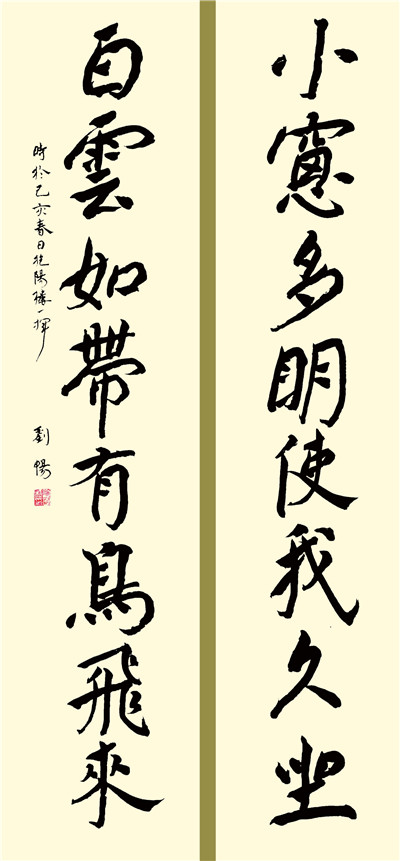 小窻多明使我久坐
白雲如帶有鳥飛來
時於己亥春日抱陽樓一揮
劉暢